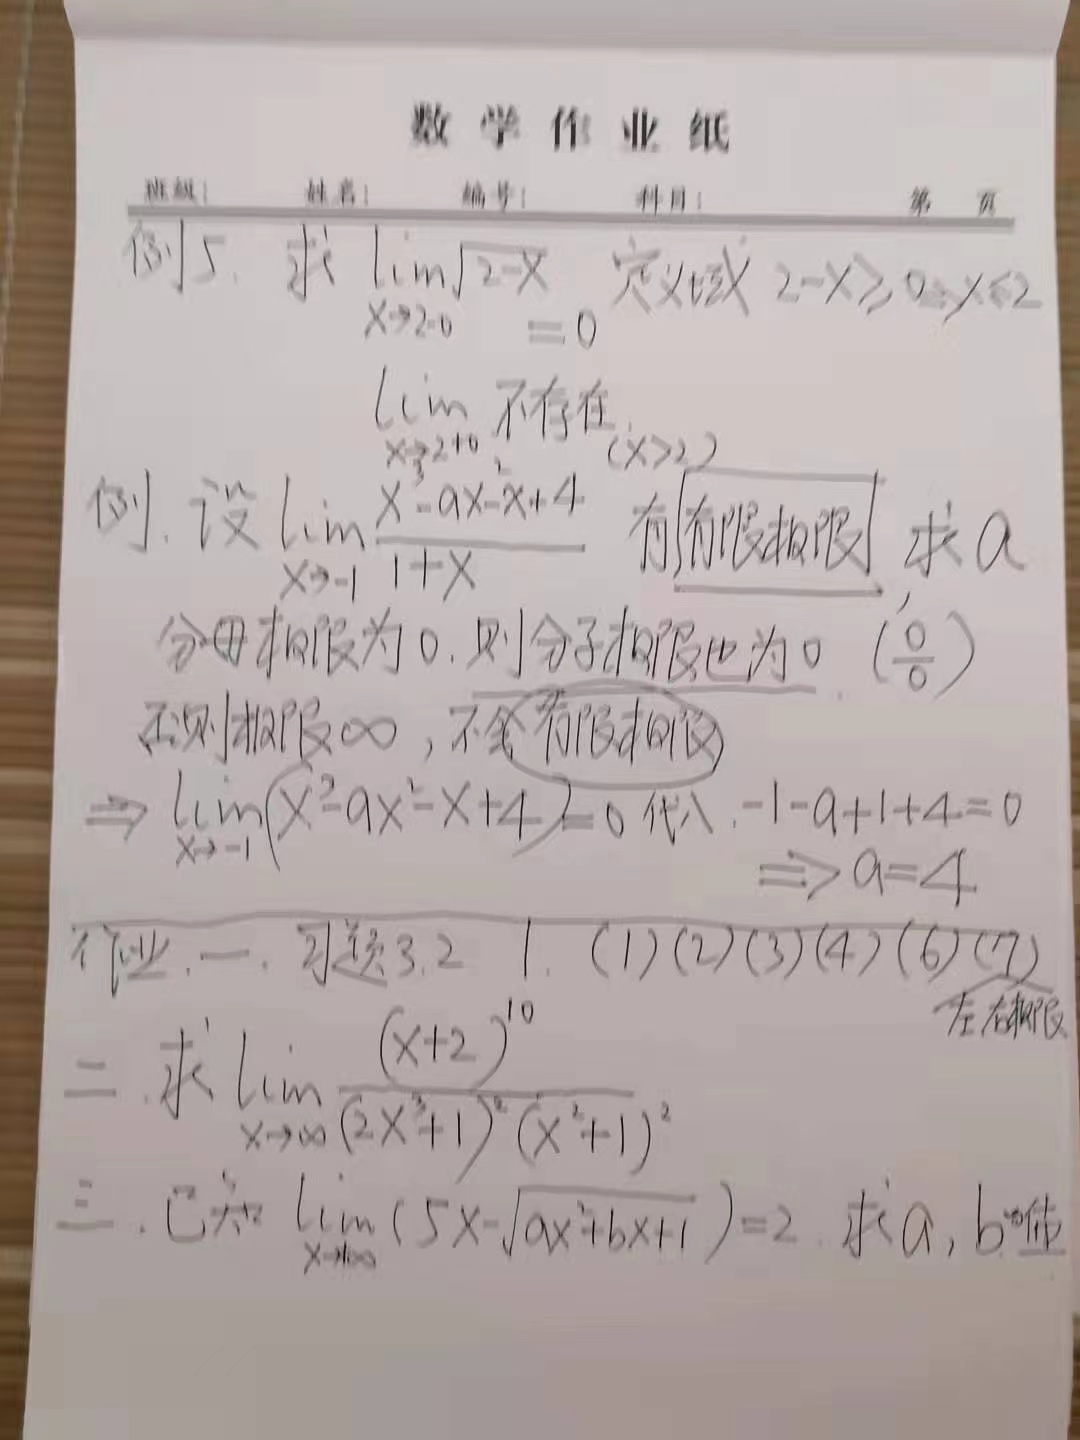 数学作业纸
班级: 姓名: 编号: 科目: 第 页
例5. 求 lim √2-x 定义域 2-x≥0⇒x≤2
x→2-0 =0
lim 不存在.
x→2+0 (x>2)
例. 设 lim x³-ax²-x+4 有 有限极限, 求a
x→-1 1+x
分母极限为0. 则分子极限也为0. (0/0)
否则极限∞, 不会有限极限
⇒ lim (x³-ax²-x+4)=0 代入. -1-a+1+4=0
x→-1
⇒a=4
作业. 一. 习题3.2 1. (1)(2)(3)(4)(6)(7)
左右极限
二. 求 lim (x+2)¹⁰
x→∞ (2x³+1)²(x²+1)²
三. 已知 lim (5x-√ax²+bx+1)=2. 求a,b的值